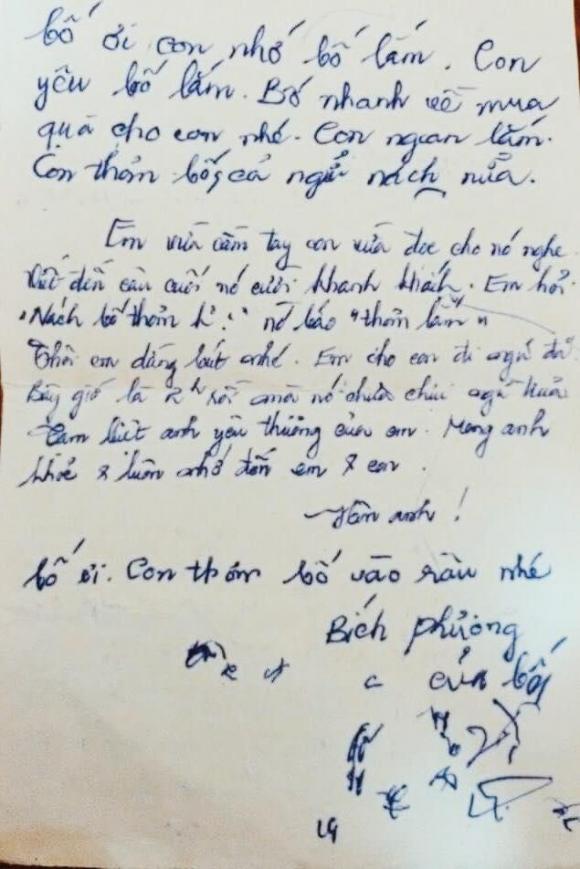 bố ơi con nhớ bố lắm. Con
yêu bố lắm. Bố nhanh về mua
quà cho con nhé. Con ngoan lắm.
Con thơm bố, cả ngửi nách nữa.
Em vừa cầm tay con vừa đọc cho nó nghe.
Viết đến câu cuối nó cười khanh khách. Em hỏi
"Nách bố thơm k?" nó bảo "thơm lắm"
Thôi em dừng bút nhé. Em cho con đi ngủ đã
Bây giờ là 2h rồi mà nó chưa chịu ngủ nữa.
Tạm biệt anh yêu thương của em. Mong anh
khoẻ & luôn nhớ đến em & con.
Hôn anh!
bố ơi. Con thơm bố vào râu nhé
Bích phượng
của bố